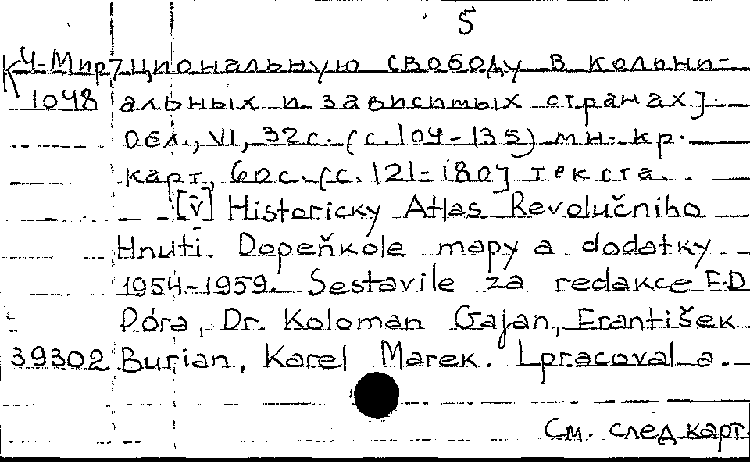 5
К Ч-Мир7 циональную свободу в колони-
1048 альных и зависимых странах].
Обл., VI, 32с. (с. 104-135) мн. кр.
карт, 60с. (с. 121-180] текста.
[V] Historicky Atlas Revolučniho
Hnuti. Dopeňkole mapy a dodatky
1954-1959. Sestavile za redakce F.D
Póra, Dr. Koloman Gajan, František
39302 Burian, Karel Marek. Lpracoval a.
См. след карт